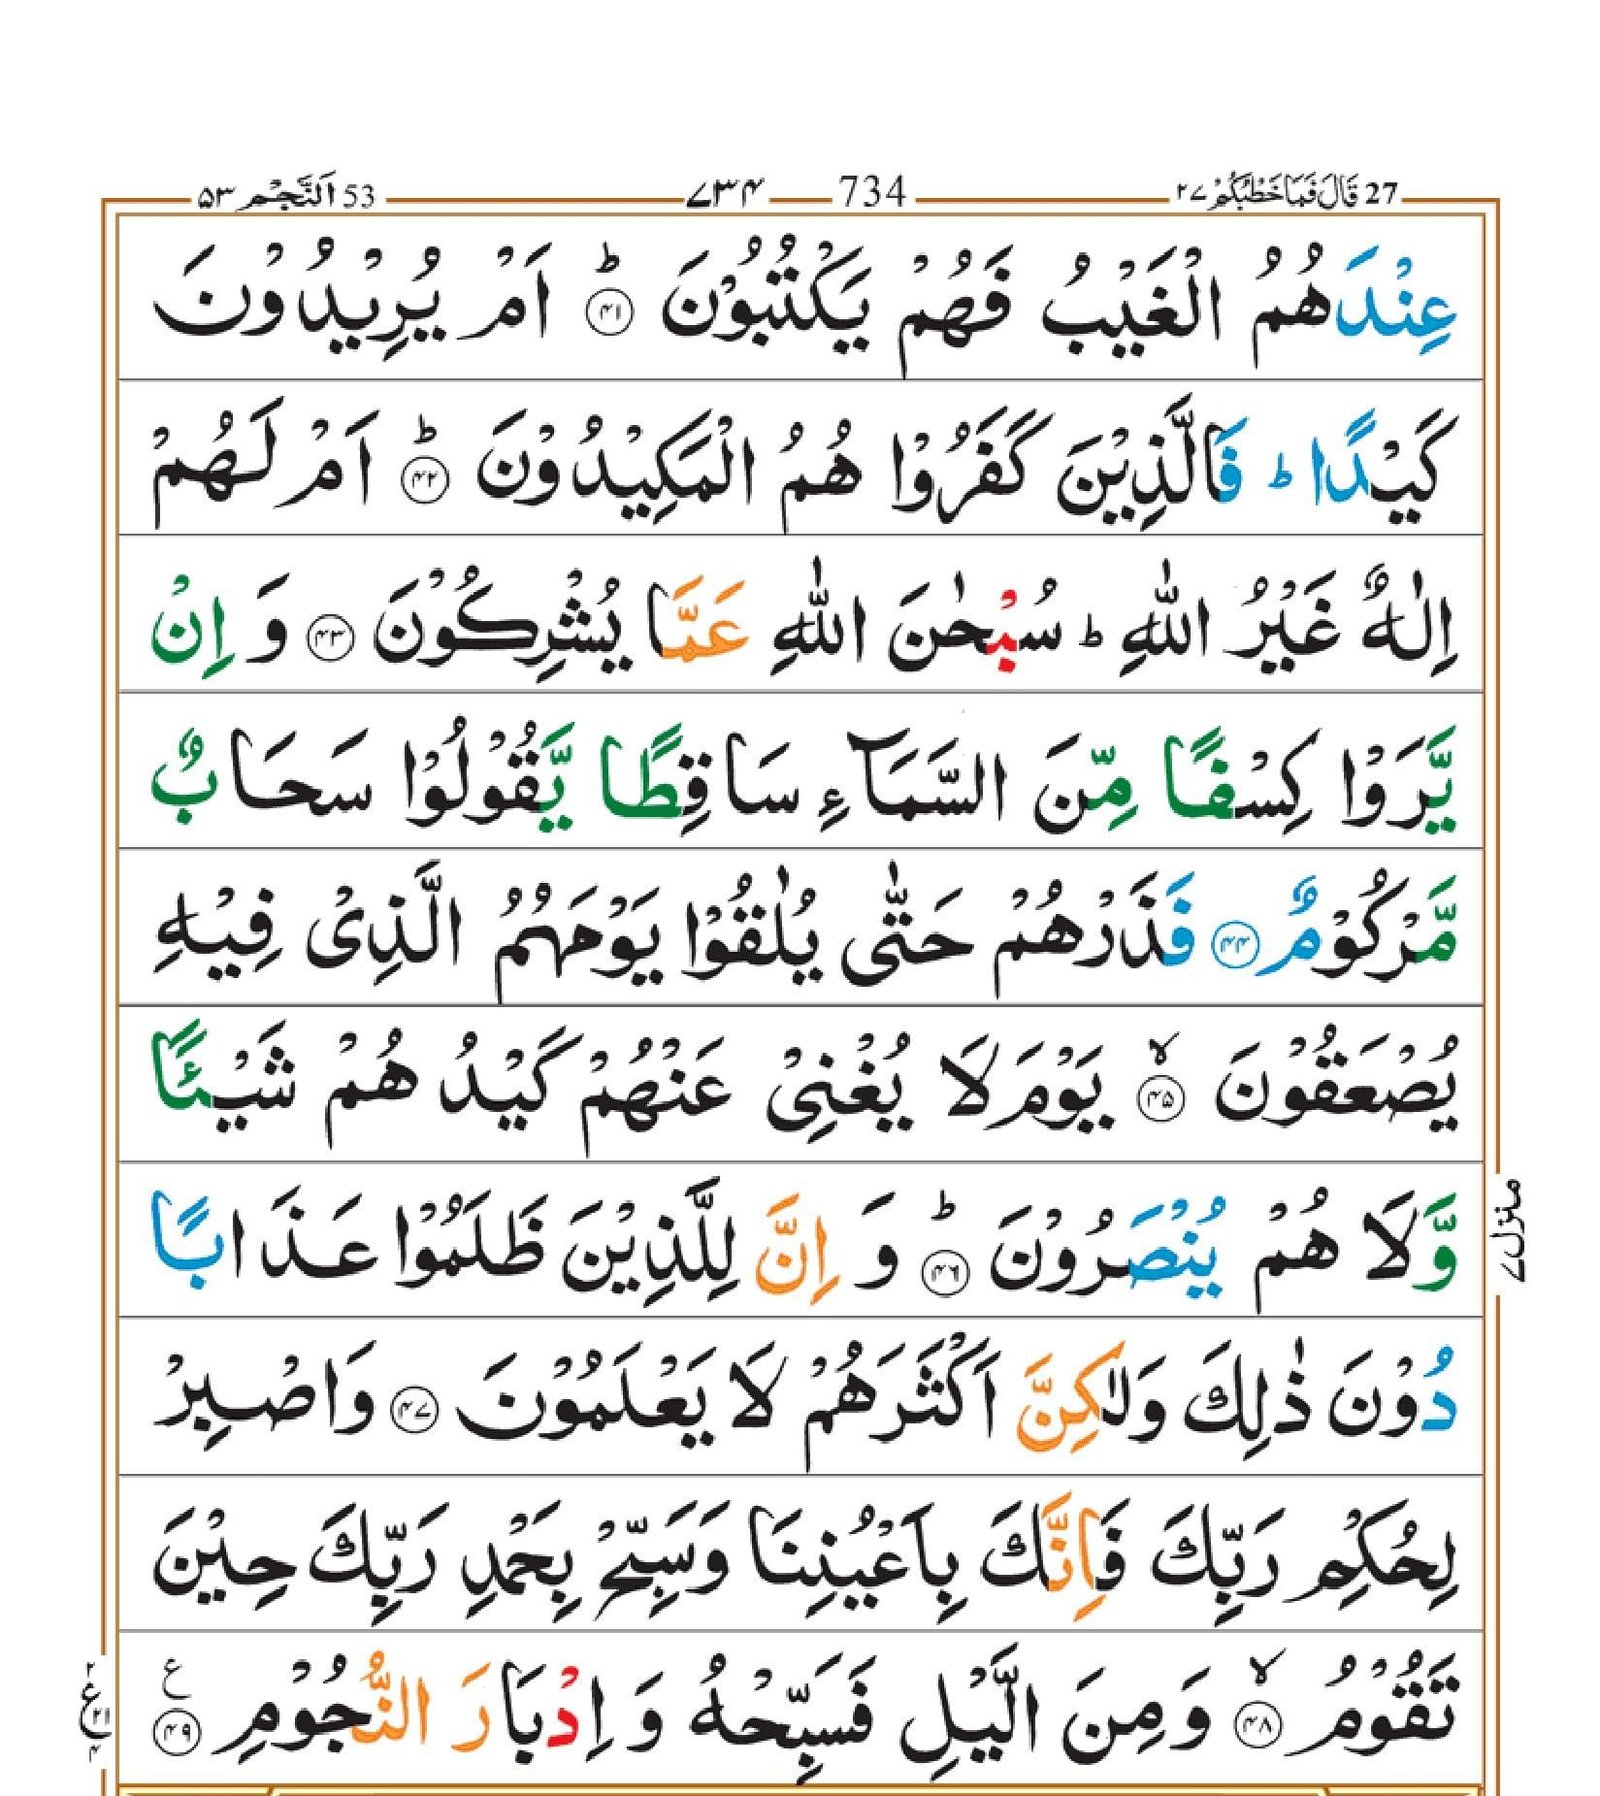 27 قَالَ فَمَا خَطْبُكُمْ ٢٧ 734 ٧٣٤ 53 اَلنَّجْم ٥٣
عِنْدَهُمُ الْغَيْبُ فَهُمْ يَكْتُبُوْنَ ؕ‏﴿۴۱﴾ اَمْ يُرِيْدُوْنَ
كَيْدًا ؕ فَالَّذِيْنَ كَفَرُوْا هُمُ الْمَكِيْدُوْنَ ؕ‏﴿۴۲﴾ اَمْ لَهُمْ
اِلٰهٌ غَيْرُ اللّٰهِ ؕ سُبْحٰنَ اللّٰهِ عَمَّا يُشْرِكُوْنَ ﴿۴۳﴾ وَ اِنْ
يَّرَوْا كِسْفًا مِّنَ السَّمَآءِ سَاقِطًا يَّقُوْلُوْا سَحَابٌ
مَّرْكُوْمٌ ﴿۴۴﴾ فَذَرْهُمْ حَتّٰى يُلٰقُوْا يَوْمَهُمُ الَّذِىْ فِيْهِ
يُصْعَقُوْنَ ۙ‏﴿۴۵﴾ يَوْمَ لَا يُغْنِىْ عَنْهُمْ كَيْدُ هُمْ شَيْـًٔا
وَّلَا هُمْ يُنْصَرُوْنَ ؕ‏﴿۴۶﴾ وَ اِنَّ لِلَّذِيْنَ ظَلَمُوْا عَذَابًا
دُوْنَ ذٰلِكَ وَلٰكِنَّ اَكْثَرَهُمْ لَا يَعْلَمُوْنَ ﴿۴۷﴾ وَاصْبِرْ
لِحُكْمِ رَبِّكَ فَاِنَّكَ بِاَعْيُنِنَا وَسَبِّحْ بِحَمْدِ رَبِّكَ حِيْنَ
تَقُوْمُ ۙ‏﴿۴۸﴾ وَمِنَ الَّيْلِ فَسَبِّحْهُ وَ اِدْبَارَ النُّجُوْمِ ﴿۴۹﴾ ع
منزل ٧
٢ ع ٢١ ٤